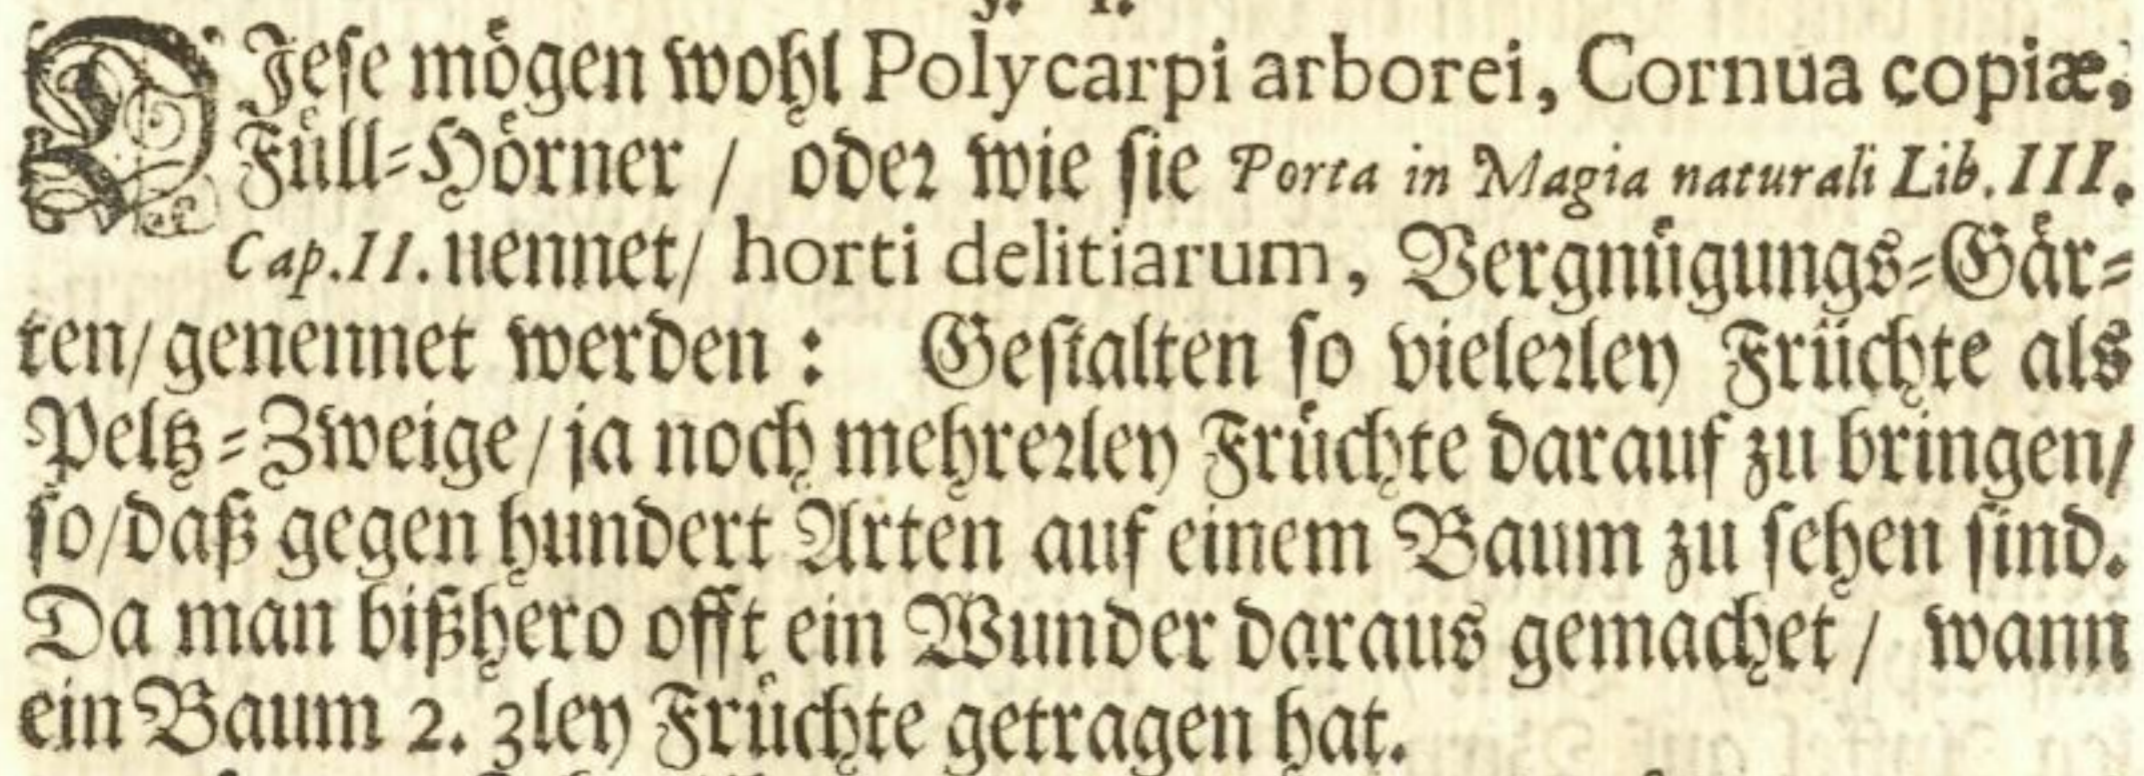 DIeſe mögen wohl Polycarpi arborei, Cornua copiæ,
Füll-Hörner / oder wie ſie Porta in Magia naturali Lib. III.
Cap. II. nennet / horti delitiarum, Vergnügungs-Gär-
ten / genennet werden: Geſtalten ſo vielerley Früchte als
Peltz-Zweige / ja noch mehrerley Früchte darauf zu bringen /
ſo / daß gegen hundert Arten auf einem Baum zu ſehen ſind.
Da man bißhero offt ein Wunder daraus gemachet / wann
ein Baum 2. 3ley Früchte getragen hat.